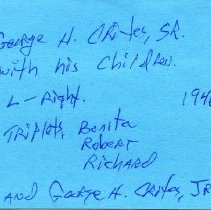 George H. Crites, SR.
with his Children.
L- Right. 194
Triplets Benita
Robert
Richard
AND George H. Crites, JR